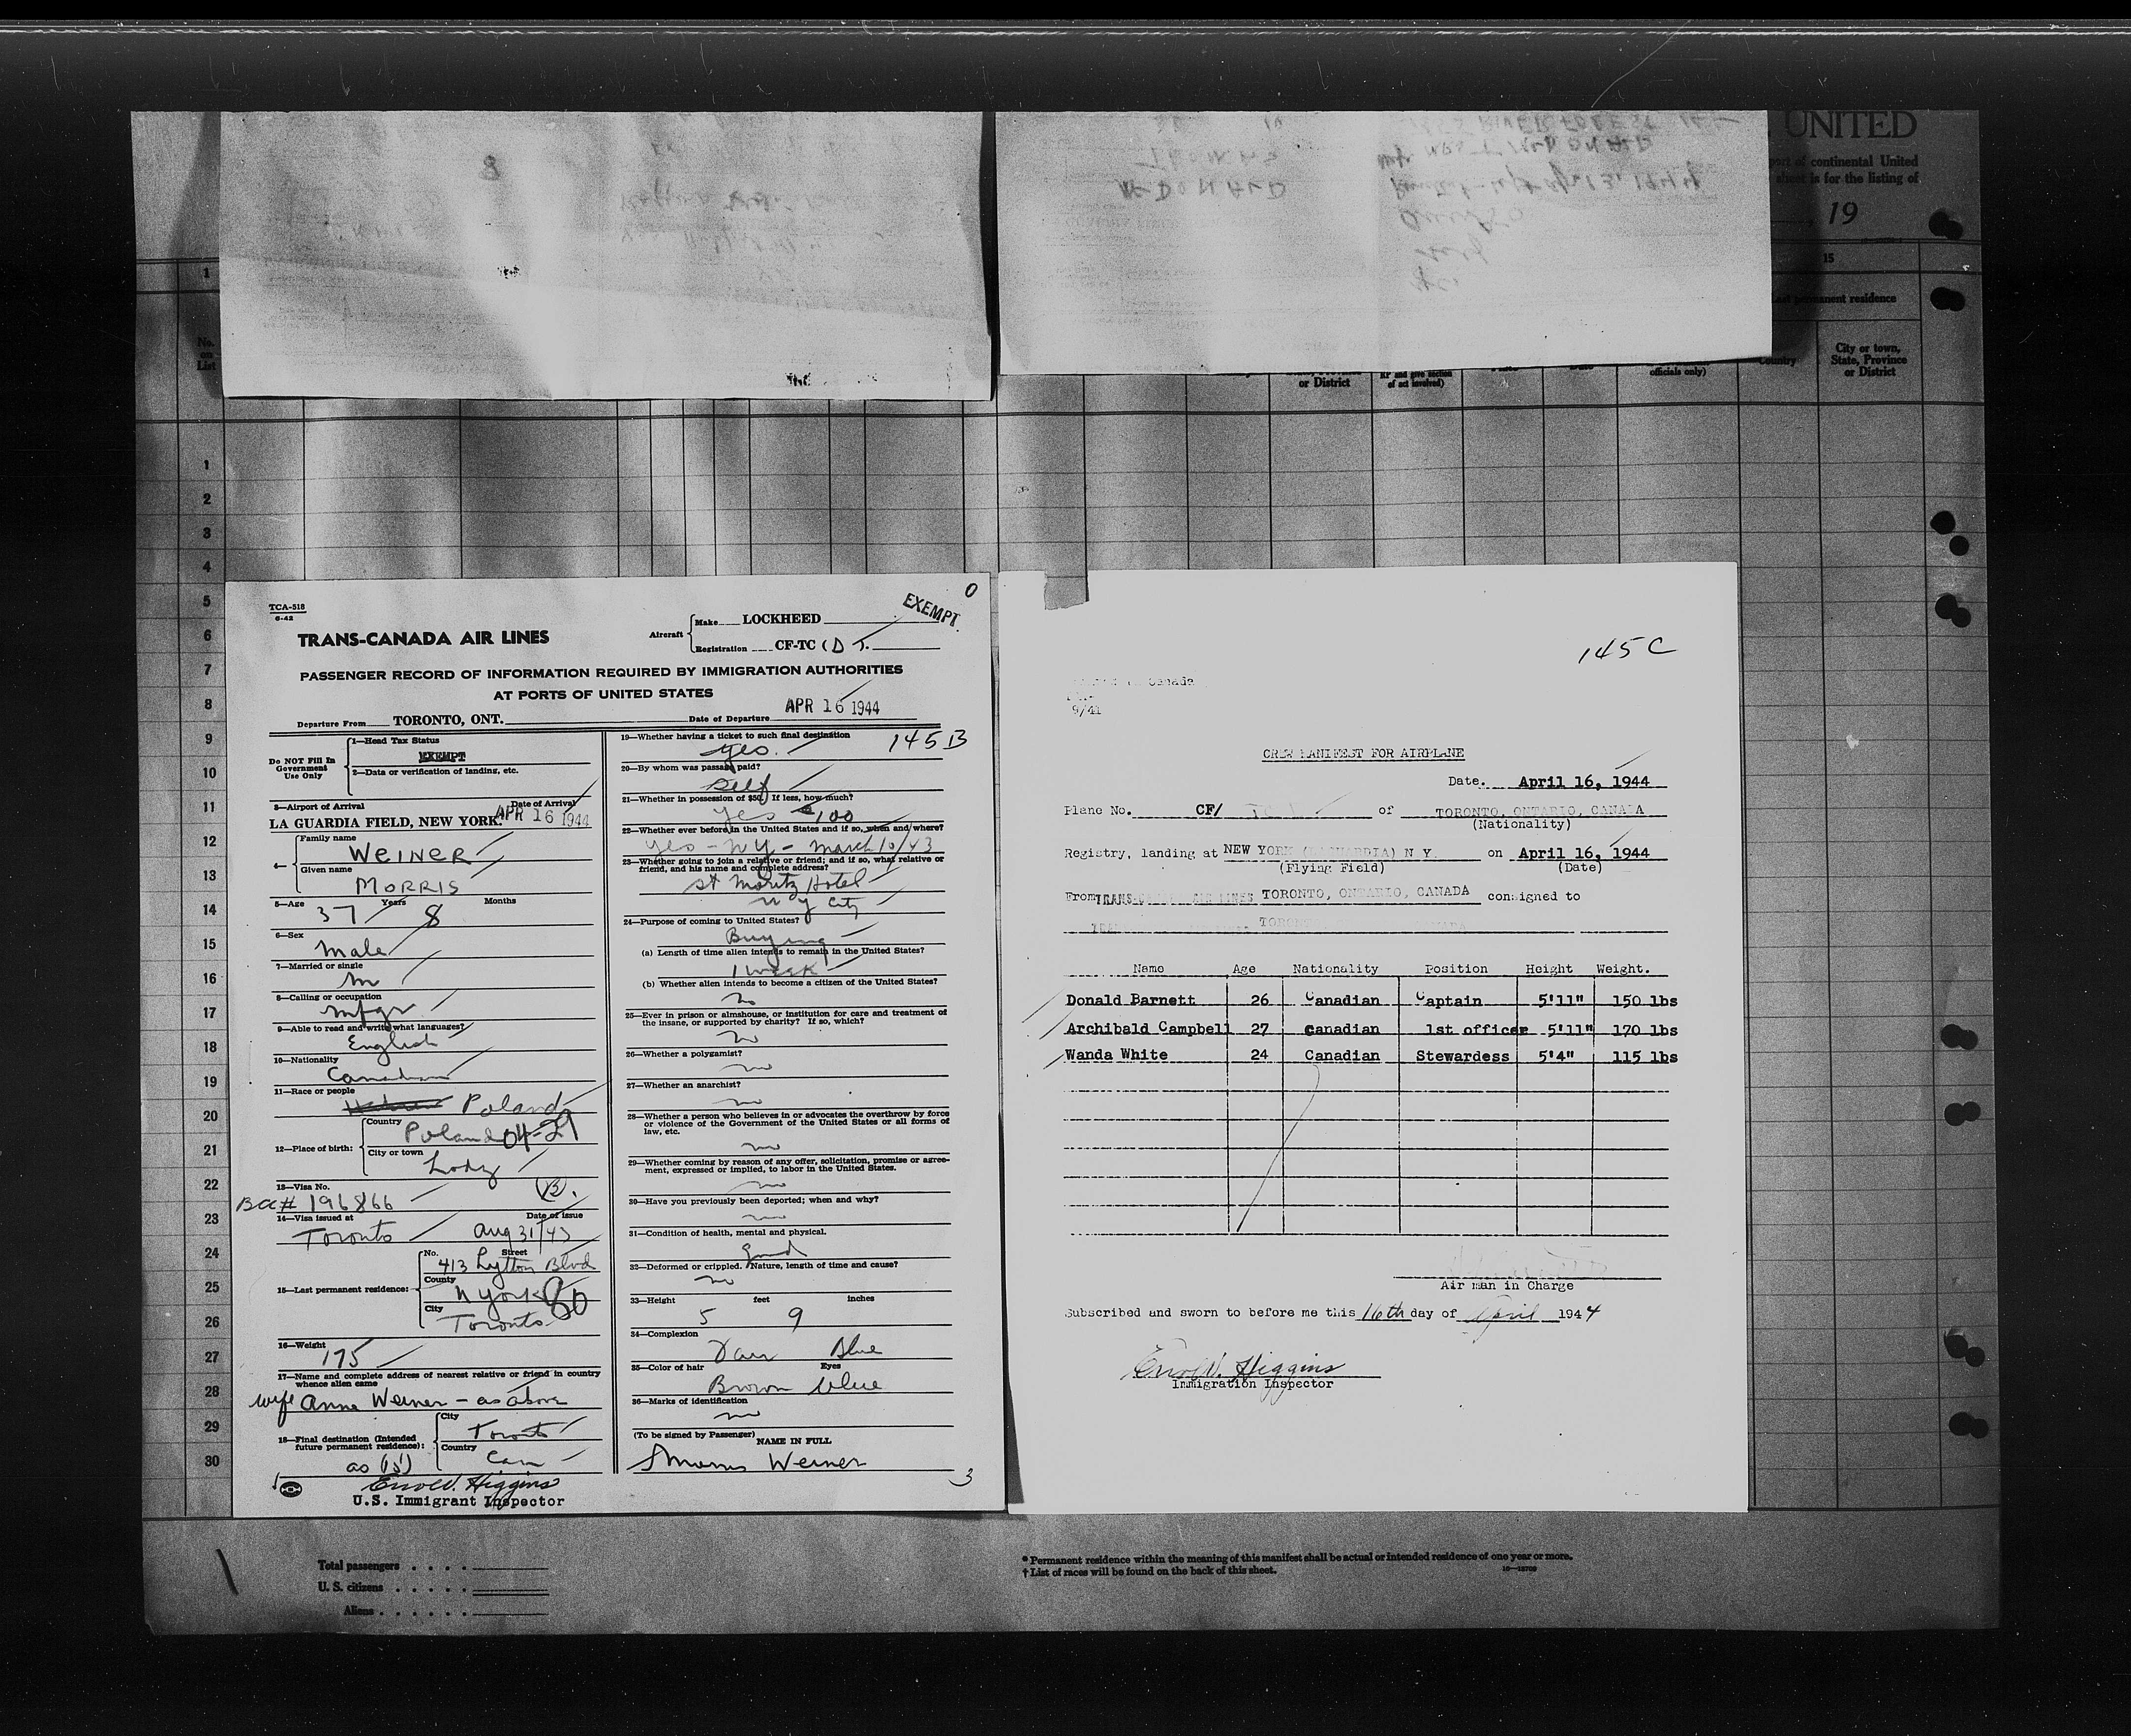 UNITED
port of continental United
sheet is for the listing of
19
15
Last permanent residence
1
No.
on
List
Country
City or town,
State, Province
or District
or District
RP and give section
of act involved)
officials only)
1
2
3
4
5
6
7
8
9
10
11
12
13
14
15
16
17
18
19
20
21
22
23
24
25
26
27
28
29
30
TCA-518
6-42
0
EXEMPT
TRANS-CANADA AIR LINES
Aircraft
Make LOCKHEED
Registration CF-TC
PASSENGER RECORD OF INFORMATION REQUIRED BY IMMIGRATION AUTHORITIES
AT PORTS OF UNITED STATES
Departure From TORONTO, ONT. Date of Departure APR 16 1944
Do NOT Fill In
Government
Use Only
1—Head Tax Status
EXEMPT
2—Data or verification of landing, etc.
3—Airport of Arrival Date of Arrival
LA GUARDIA FIELD, NEW YORK. APR 16 1944
4—
Family name
WEINER
Given name
MORRIS
5—Age 37 Years 8 Months
6—Sex
Male
7—Married or single
M
8—Calling or occupation
Mfgr
9—Able to read and write what languages?
English
10—Nationality
Canadian
11—Race or people
Poland
12—Place of birth:
Country
Poland 04-21
City or town
Lodz
13—Visa No.
BCC# 196866 B.
14—Visa issued at Date of issue
Toronto Aug 31/43
15—Last permanent residence:
No. Street
413 Lytton Blvd
County
N York 80
City
Toronto
16—Weight
175
17—Name and complete address of nearest relative or friend in country
whence alien came
wife Anne Weiner - as above
18—Final destination (Intended
future permanent residence):
City
Toronto
Country
Can
as (15)
Errol V. Higgins
U.S. Immigrant Inspector
19—Whether having a ticket to such final destination
yes. 145 B
20—By whom was passage paid?
Self
21—Whether in possession of $50. If less, how much?
yes $100
22—Whether ever before in the United States and if so, when and where?
yes - NY - March 10/43
23—Whether going to join a relative or friend; and if so, what relative or
friend, and his name and complete address?
St Moritz Hotel
N Y City
24—Purpose of coming to United States?
Buying
(a) Length of time alien intends to remain in the United States?
1 week
(b) Whether alien intends to become a citizen of the United States?
no
25—Ever in prison or almshouse, or institution for care and treatment of
the insane, or supported by charity? If so, which?
no
26—Whether a polygamist?
no
27—Whether an anarchist?
no
28—Whether a person who believes in or advocates the overthrow by force
or violence of the Government of the United States or all forms of
law, etc.
no
29—Whether coming by reason of any offer, solicitation, promise or agree-
ment, expressed or implied, to labor in the United States.
no
30—Have you previously been deported; when and why?
no
31—Condition of health, mental and physical.
Good
32—Deformed or crippled. Nature, length of time and cause?
no
33—Height feet inches
5 9
34—Complexion
35—Color of hair Eyes
Brown blue
36—Marks of identification
no
(To be signed by Passenger)
NAME IN FULL
Morris Weiner
3
145 C
Canada
9/41
CREW MANIFEST FOR AIRPLANE
Date. April 16, 1944
Plane No. CF/ of TORONTO, ONTARIO, CANADA
(Nationality)
Registry, landing at NEW YORK (LAGUARDIA) N Y. on April 16, 1944
(Flying Field) (Date)
From TRANS-CANADA AIR LINES TORONTO, ONTARIO, CANADA consigned to
Name Age Nationality Position Height Weight.
Donald Barnett 26 Canadian Captain 5'11" 150 lbs
Archibald Campbell 27 Canadian 1st officer 5'11" 170 lbs
Wanda White 24 Canadian Stewardess 5'4" 115 lbs
Air man in Charge
Subscribed and sworn to before me this 16th day of April 1944
Errol V. Higgins
Immigration Inspector
Total passengers
U. S. citizens
Aliens
* Permanent residence within the meaning of this manifest shall be actual or intended residence of one year or more.
† List of races will be found on the back of this sheet.